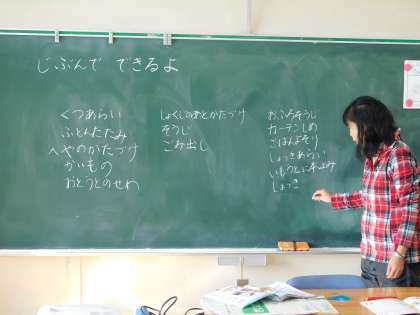 じぶんで できるよ
くつあらい
ふとんたたみ
へやのかたづけ
かいもの
おとうとのせわ
しょくじのあとかたづけ
そうじ
ごみ出し
おふろそうじ
カーテンしめ
ごはんよそり
しょっきあらい
いもうとに本よみ
しょっき